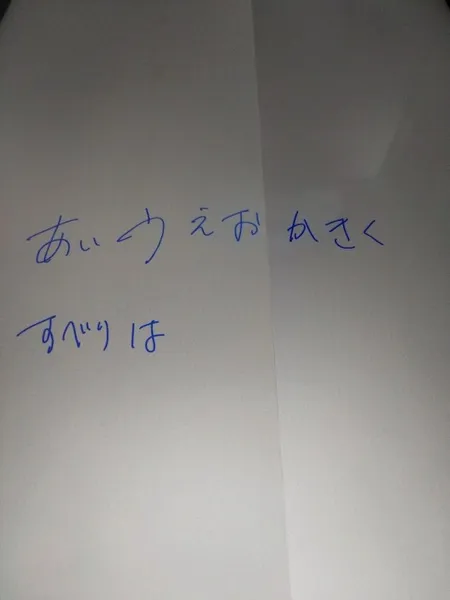 あいうえおかきく
すべりは